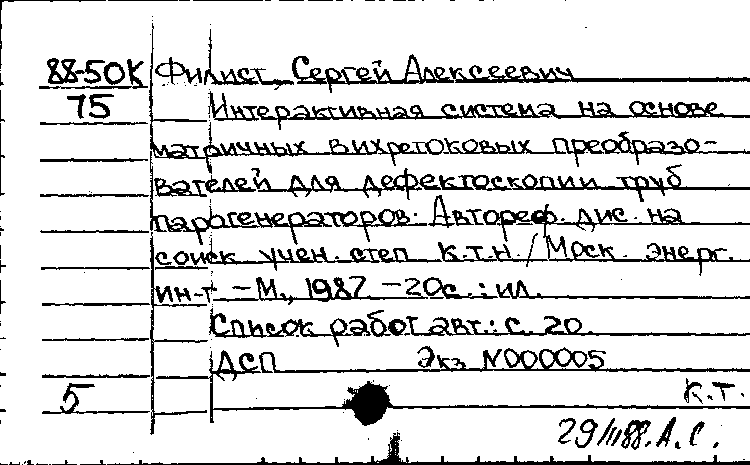 88-50К Филист, Сергей Алексеевич
75 Интерактивная система на основе
матричных вихретоковых преобразо-
вателей для дефектоскопии труб
парогенераторов. Автореф. дис. на
соиск учен. степ к.т.н. / Моск. энерг.
ин-т. - М., 1987. - 20с. : ил.
Список работ авт.: с. 20.
ДСП Экз N000005
5 К.Т.
29/III88. А.С.